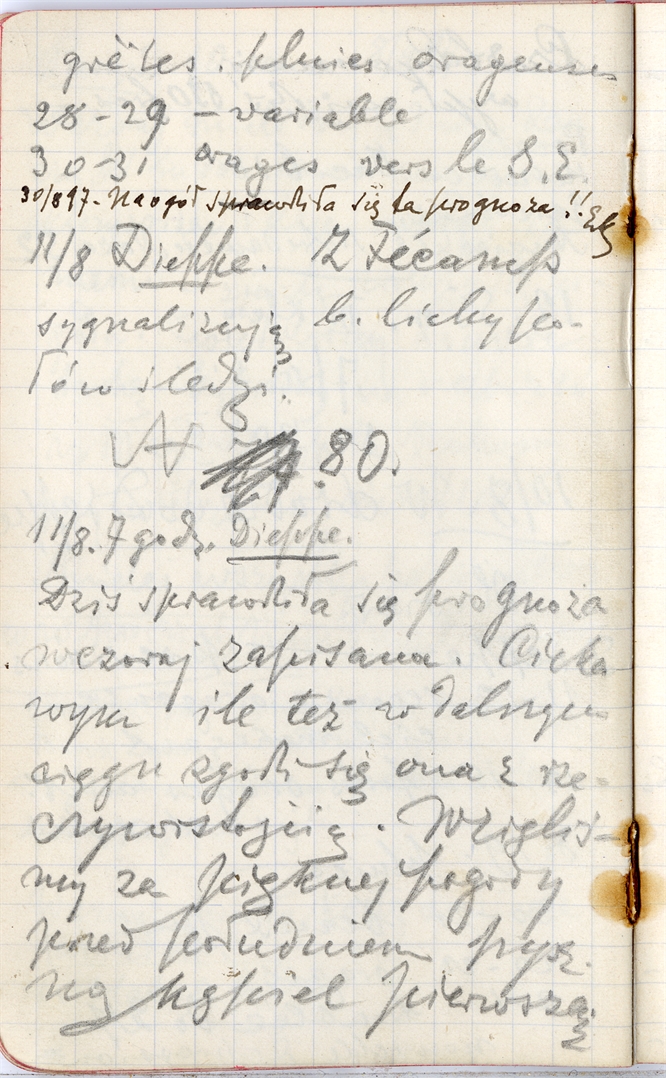 grêles. pluies orageuses
28-29 – variable
30-31 orages vers le S.E.
30/8 97. Naogół sprawdziła się ta prognoza!!
11/8 Dieppe. Z Fécamp
sygnalizują b. lichy po-
łów śledzi.
80.
11/8. 7 godz. Dieppe.
Dziś sprawdziła się prognoza
wczoraj zapisana. Cieka
wym ile też w dalszym
ciągu zgodzi się ona z rze-
czywistością. Wzięliś-
my za pięknej pogody
przed południem pysz.
ną kąpiel pierwszą